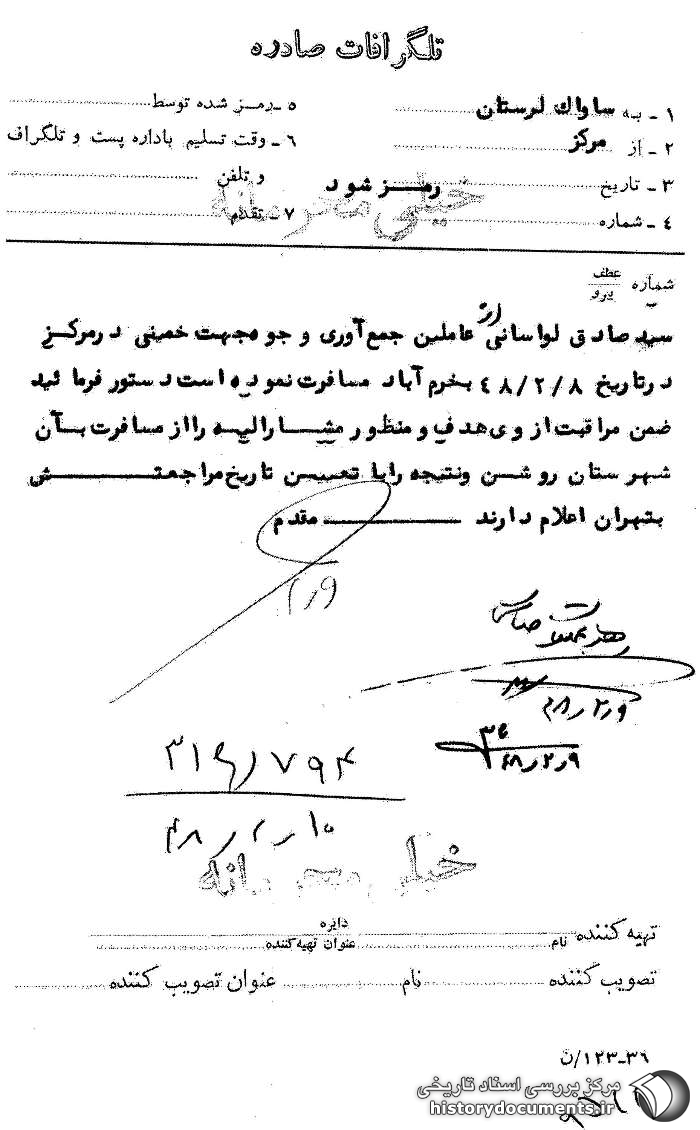 تلگرافات صادره
۱ ـ به ساواك لرستان
۲ ـ از مركز
۳ ـ تاریخ رمز شود
۴ ـ شماره
۵ ـ رمز شده توسط
۶ ـ وقت تسلیم باداره پست و تلگراف
و تلفن
۷ ـ تقدم
خیلی محرمانه
شماره عطف
پیرو
سید صادق لواسانی از عاملین جمع‌آوری و جوه جهت خمینی درمركز
درتاریخ ۴۸/۲/۸ بخرم آباد مسافرت نموده است دستور فرمائید
ضمن مراقبت از وی هدف و منظور مشارالیه را از مسافرت بآن
شهرستان روشن و نتیجه را با تعیین تاریخ مراجعتش
بتهران اعلام دارند مقدم
۴۸/۲/۹
۴۸/۲/۹
۳۱۶/۷۹۴
۴۸/۲/۱۰
خیلی محرمانه
تهیه كننده نام دایره
عنوان تهیه‌كننده
تصویب كننده نام عنوان تصویب كننده
۳۶-۱۲۳/ن
مركز بررسی اسناد تاریخی
historydocuments.ir